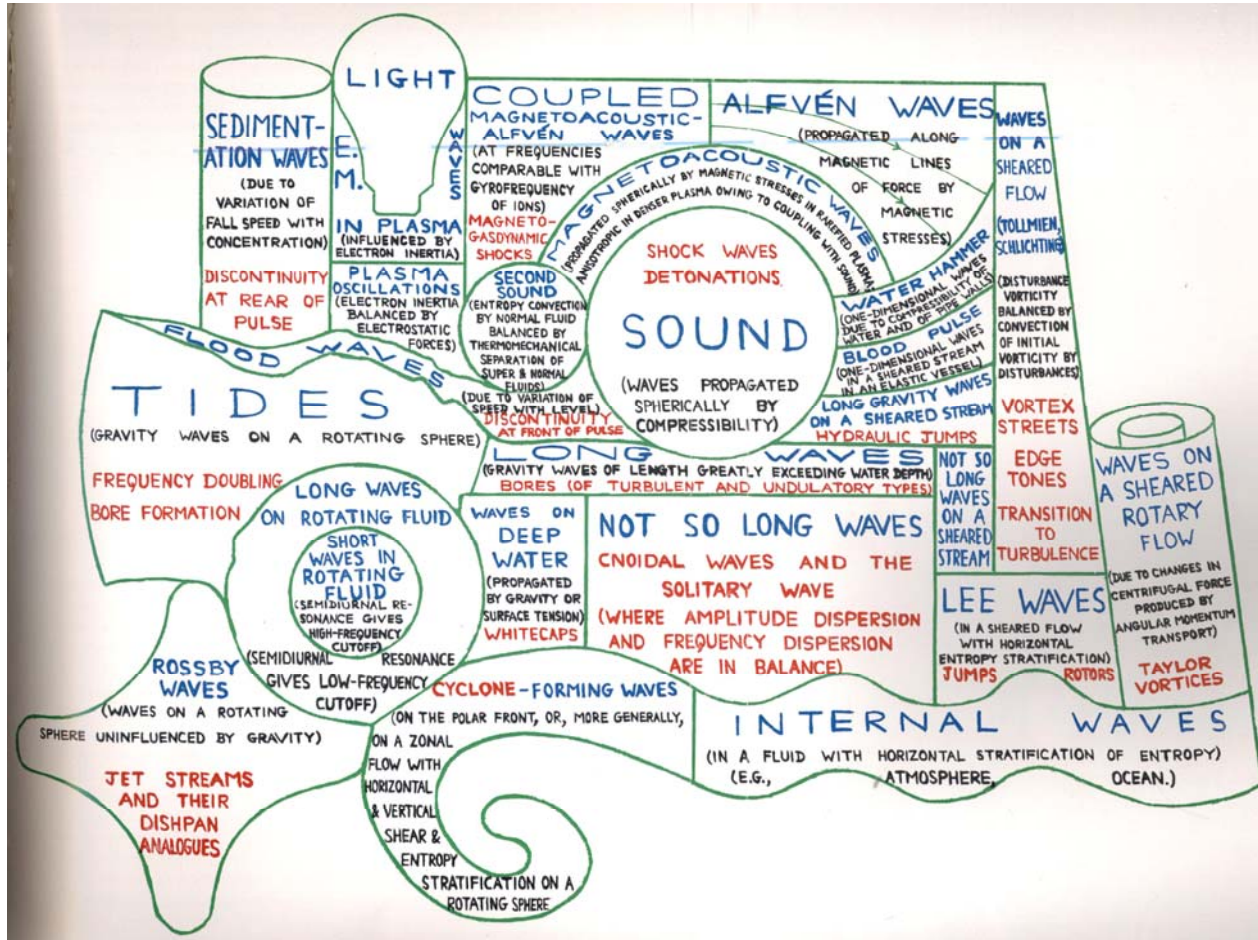 SEDIMENT-
ATION WAVES
(DUE TO
VARIATION OF
FALL SPEED WITH
CONCENTRATION)
DISCONTINUITY
AT REAR OF
PULSE
LIGHT
E.
M.
WAVES
IN PLASMA
(INFLUENCED BY
ELECTRON INERTIA)
PLASMA
OSCILLATIONS
(ELECTRON INERTIA
BALANCED BY
ELECTROSTATIC
FORCES)
COUPLED
MAGNETOACOUSTIC-
ALFVÉN WAVES
(AT FREQUENCIES
COMPARABLE WITH
GYROFREQUENCY
OF IONS)
MAGNETO-
GASDYNAMIC
SHOCKS
ALFVÉN WAVES
(PROPAGATED ALONG
MAGNETIC LINES
OF FORCE BY
MAGNETIC
STRESSES)
MAGNETOACOUSTIC WAVES
(PROPAGATED SPHERICALLY BY MAGNETIC STRESSES IN RAREFIED PLASMA,
ANISOTROPIC IN DENSER PLASMA OWING TO COUPLING WITH SOUND)
SECOND
SOUND
(ENTROPY CONVECTION
BY NORMAL FLUID
BALANCED BY
THERMOMECHANICAL
SEPARATION OF
SUPER & NORMAL
FLUIDS)
SHOCK WAVES
DETONATIONS
SOUND
(WAVES PROPAGATED
SPHERICALLY BY
COMPRESSIBILITY)
WATER HAMMER
(ONE-DIMENSIONAL WAVES
DUE TO COMPRESSIBILITY OF
WATER AND OF PIPE WALLS)
BLOOD PULSE
(ONE-DIMENSIONAL WAVES
IN A SHEARED STREAM
IN AN ELASTIC VESSEL)
LONG GRAVITY WAVES
ON A SHEARED STREAM
HYDRAULIC JUMPS
WAVES
ON A
SHEARED
FLOW
(TOLLMIEN,
SCHLICHTING)
(DISTURBANCE
VORTICITY
BALANCED BY
CONVECTION
OF INITIAL
VORTICITY BY
DISTURBANCES)
VORTEX
STREETS
EDGE
TONES
TRANSITION
TO
TURBULENCE
FLOOD WAVES
(DUE TO VARIATION OF
SPEED WITH LEVEL)
DISCONTINUITY
AT FRONT OF PULSE
TIDES
(GRAVITY WAVES ON A ROTATING SPHERE)
FREQUENCY DOUBLING
BORE FORMATION
LONG WAVES
(GRAVITY WAVES OF LENGTH GREATLY EXCEEDING WATER DEPTH)
BORES (OF TURBULENT AND UNDULATORY TYPES)
NOT SO
LONG
WAVES
ON A
SHEARED
STREAM
WAVES ON
A SHEARED
ROTARY
FLOW
(DUE TO CHANGES IN
CENTRIFUGAL FORCE
PRODUCED BY
ANGULAR MOMENTUM
TRANSPORT)
TAYLOR
VORTICES
LONG WAVES
ON ROTATING FLUID
SHORT
WAVES IN
ROTATING
FLUID
(SEMIDIURNAL RE-
SONANCE GIVES
HIGH-FREQUENCY
CUTOFF)
(SEMIDIURNAL RESONANCE
GIVES LOW-FREQUENCY
CUTOFF)
WAVES ON
DEEP
WATER
(PROPAGATED
BY GRAVITY OR
SURFACE TENSION)
WHITECAPS
NOT SO LONG WAVES
CNOIDAL WAVES AND THE
SOLITARY WAVE
(WHERE AMPLITUDE DISPERSION
AND FREQUENCY DISPERSION
ARE IN BALANCE)
LEE WAVES
(IN A SHEARED FLOW
WITH HORIZONTAL
ENTROPY STRATIFICATION)
JUMPS ROTORS
ROSSBY
WAVES
(WAVES ON A ROTATING
SPHERE UNINFLUENCED BY GRAVITY)
JET STREAMS
AND THEIR
DISHPAN
ANALOGUES
CYCLONE-FORMING WAVES
(ON THE POLAR FRONT, OR, MORE GENERALLY,
ON A ZONAL
FLOW WITH
HORIZONTAL
& VERTICAL
SHEAR &
ENTROPY
STRATIFICATION ON A
ROTATING SPHERE
INTERNAL WAVES
(IN A FLUID WITH HORIZONTAL STRATIFICATION OF ENTROPY)
(E.G., ATMOSPHERE, OCEAN.)